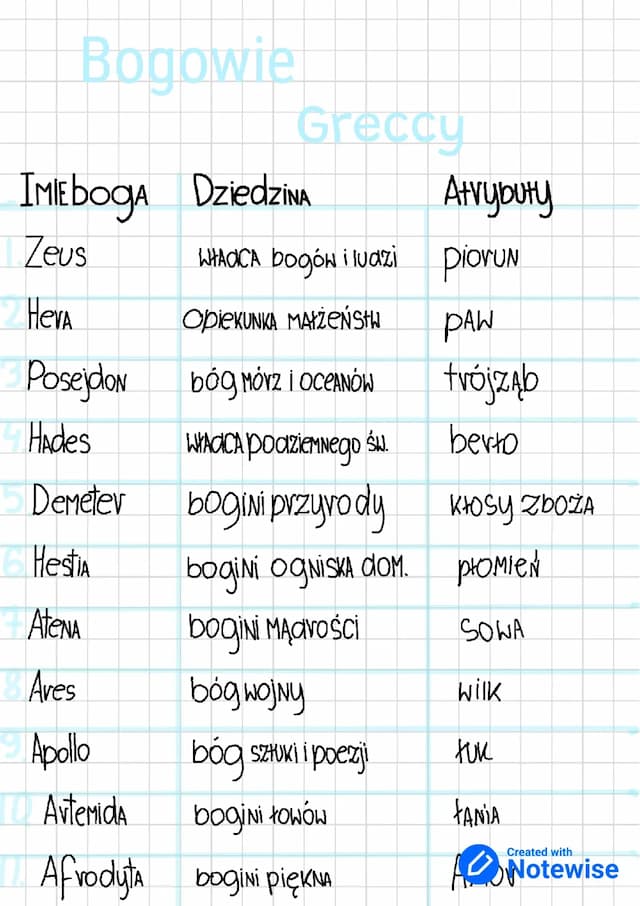 Bogowie
Greccy
Imię boga Dziedzina Atrybuty
1. Zeus władca bogów i ludzi piorun
2 Hera opiekunka małżeństw paw
3 Posejdon bóg mórz i oceanów trójząb
4. Hades władca podziemnego św. berło
5 Demeter bogini przyrody kłosy zboża
6 Hestia bogini ogniska dom. płomień
7 Atena bogini mądrości sowa
8 Ares bóg wojny wilk
9. Apollo bóg sztuki i poezji łuk
10 Artemida bogini łowów łania
11. Afrodyta bogini piękna
Created with
Notewise